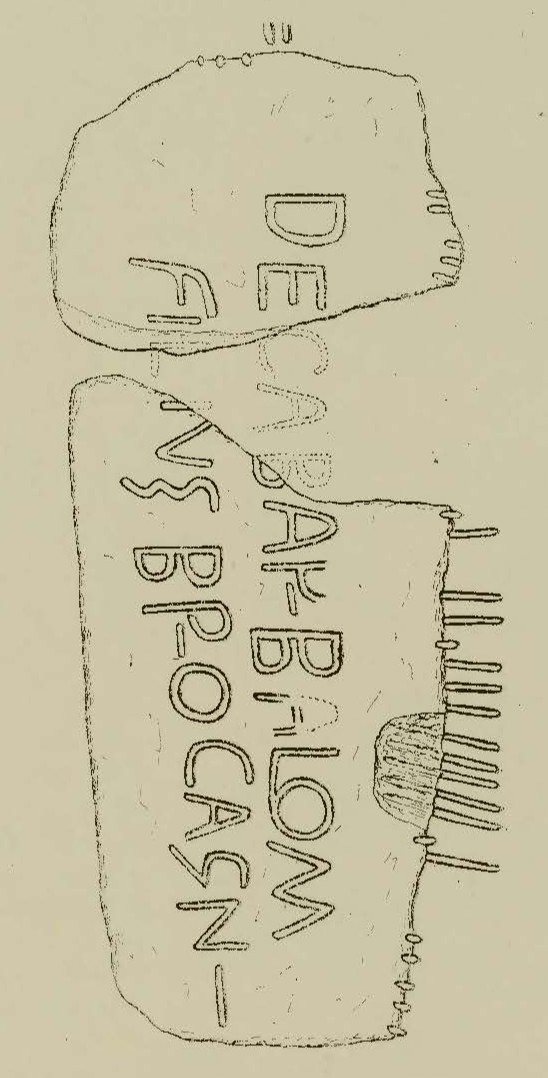 DECABARBALOM
FILIVS BROCAGNI